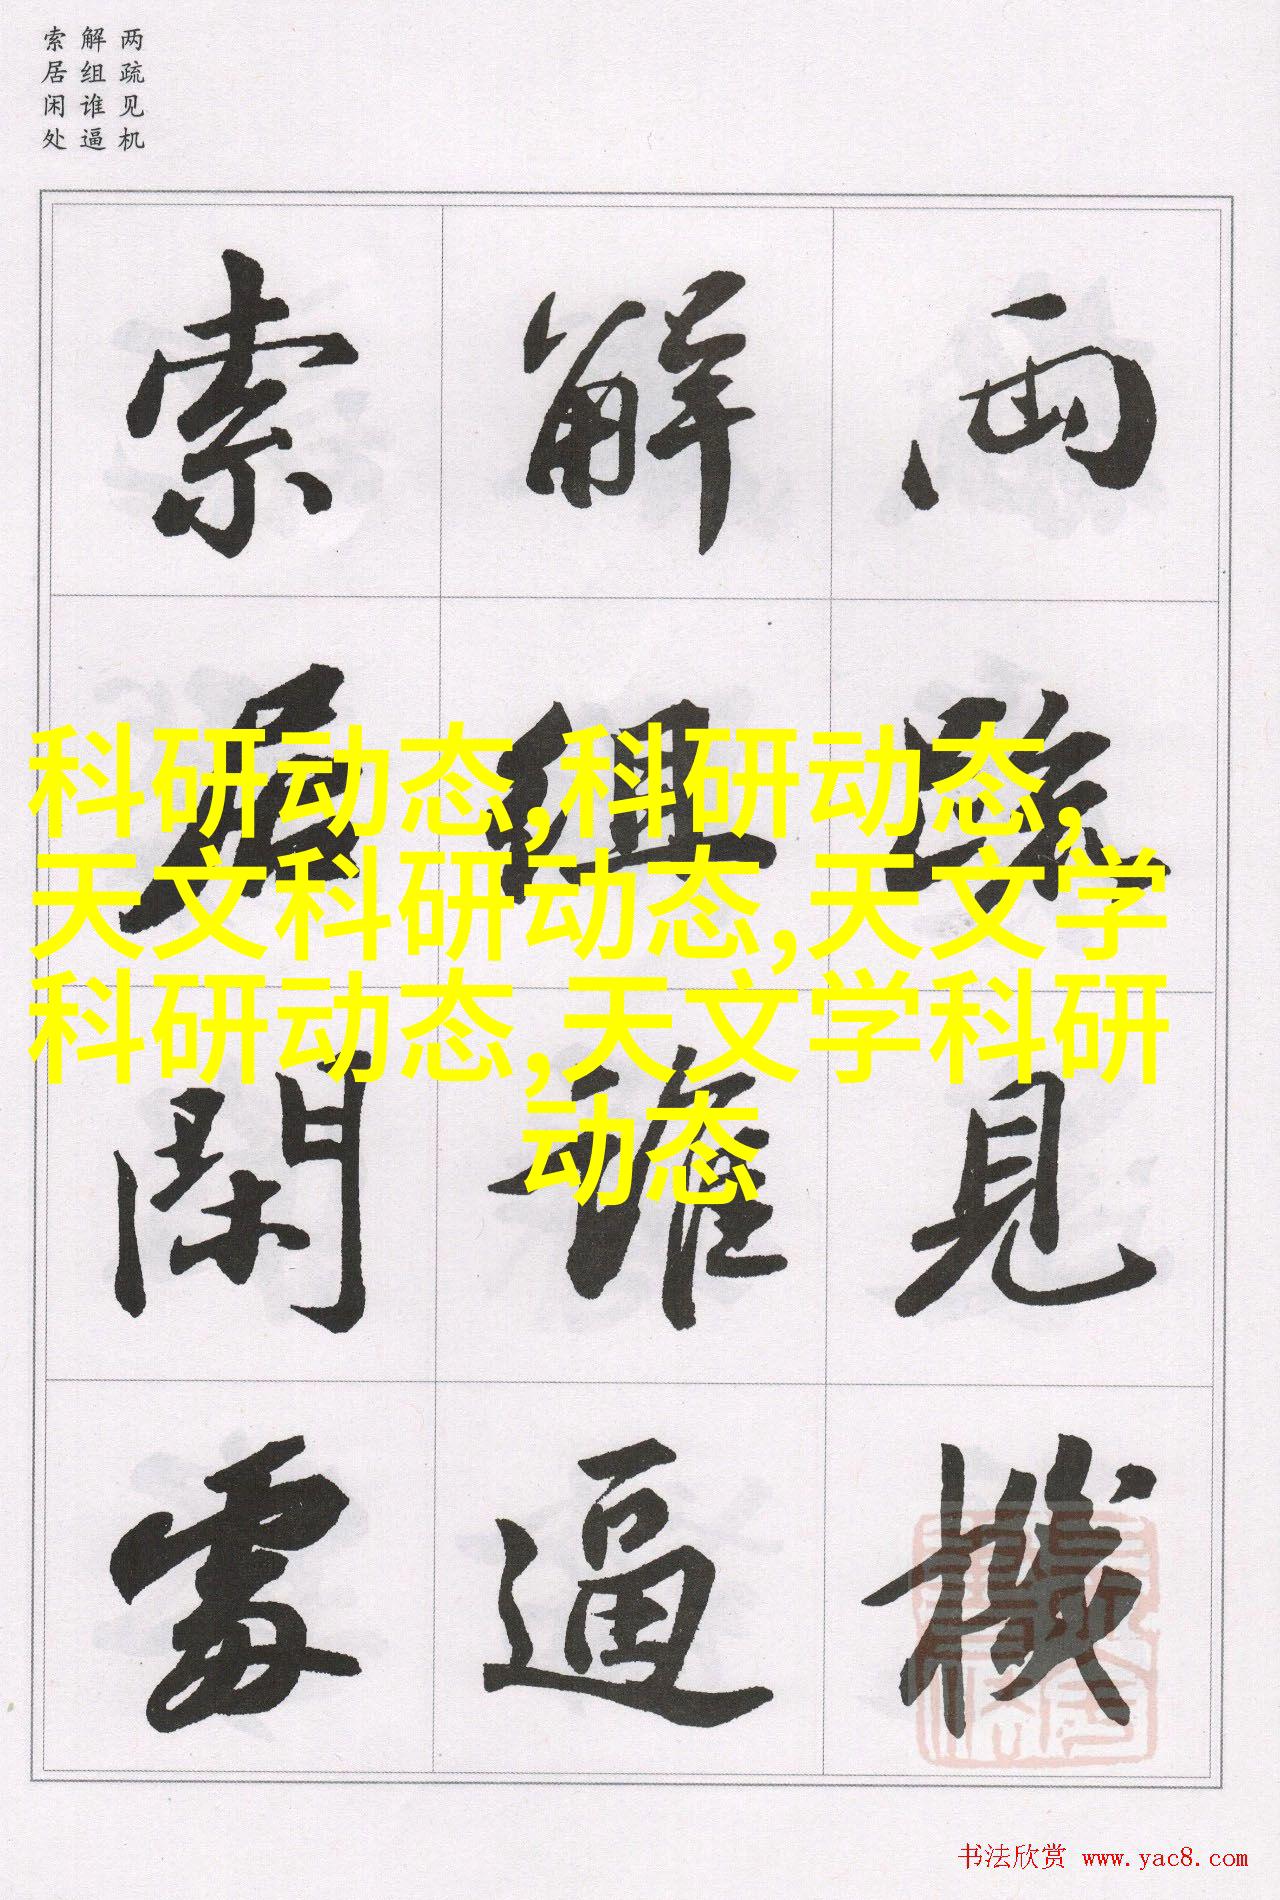 两疏见机
解组谁逼
索居闲处
两疏見機
解組谁逼
索居閑處
科研动态,科研动态,
天文科研动态,天文学
科研动态,天文学科研
动态
书法欣赏 www.yac8.com